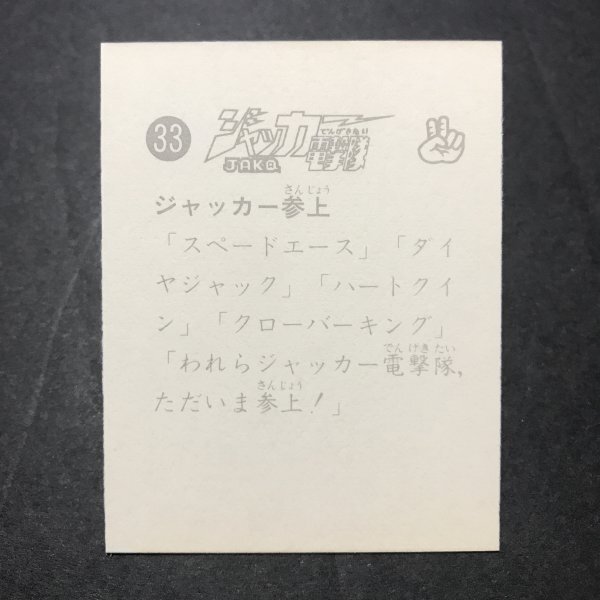 33
ジャッカー
でんげきたい
電撃隊
JAKQ
さんじょう
ジャッカー参上
「スペードエース」「ダイ
ヤジャック」「ハートクイ
ン」「クローバーキング」
でんげきたい
「われらジャッカー電撃隊,
さんじょう
ただいま参上!」